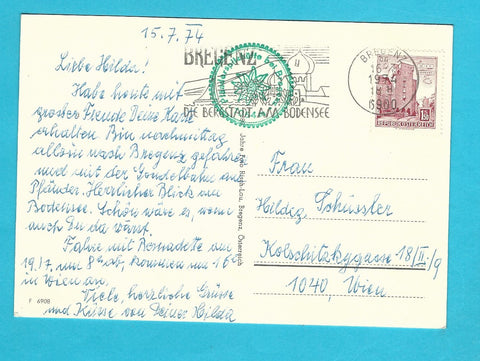 15.7.74
Liebe Hilda!
Habe heute mit
großer Freude Deine Karte
erhalten. Bin nachmittag
allein nach Bregenz gefahren
und mit der Gondelbahn am
Pfänder. Herrlicher Blick am
Bodensee. Schön wäre es, wenn
auch Du da wärst.
Fahre mit Bernadette am
19./7. um 8 ab, kommen um 16
in Wien an.
Viele, herzliche Grüsse
und Küsse von Deiner Hilda
F 6908
BREGENZ
DIE BERGSTADT AM BODENSEE
BREGENZ
1974
6900
REPUBLIK ÖSTERREICH
Bregenz, Österreich
Frau
Hildeg. Schüssler
Kolschitzkygasse 18/II./9
1040, Wien